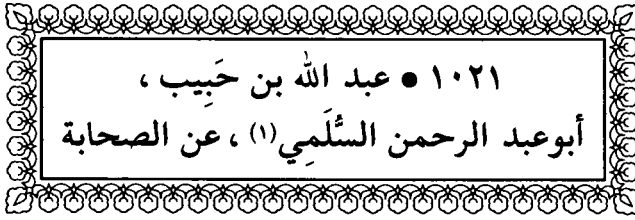 ١٠٢١ • عبد الله بن حَبِيب ،
أبوعبد الرحمن السُّلَمِي(١) ، عن الصحابة